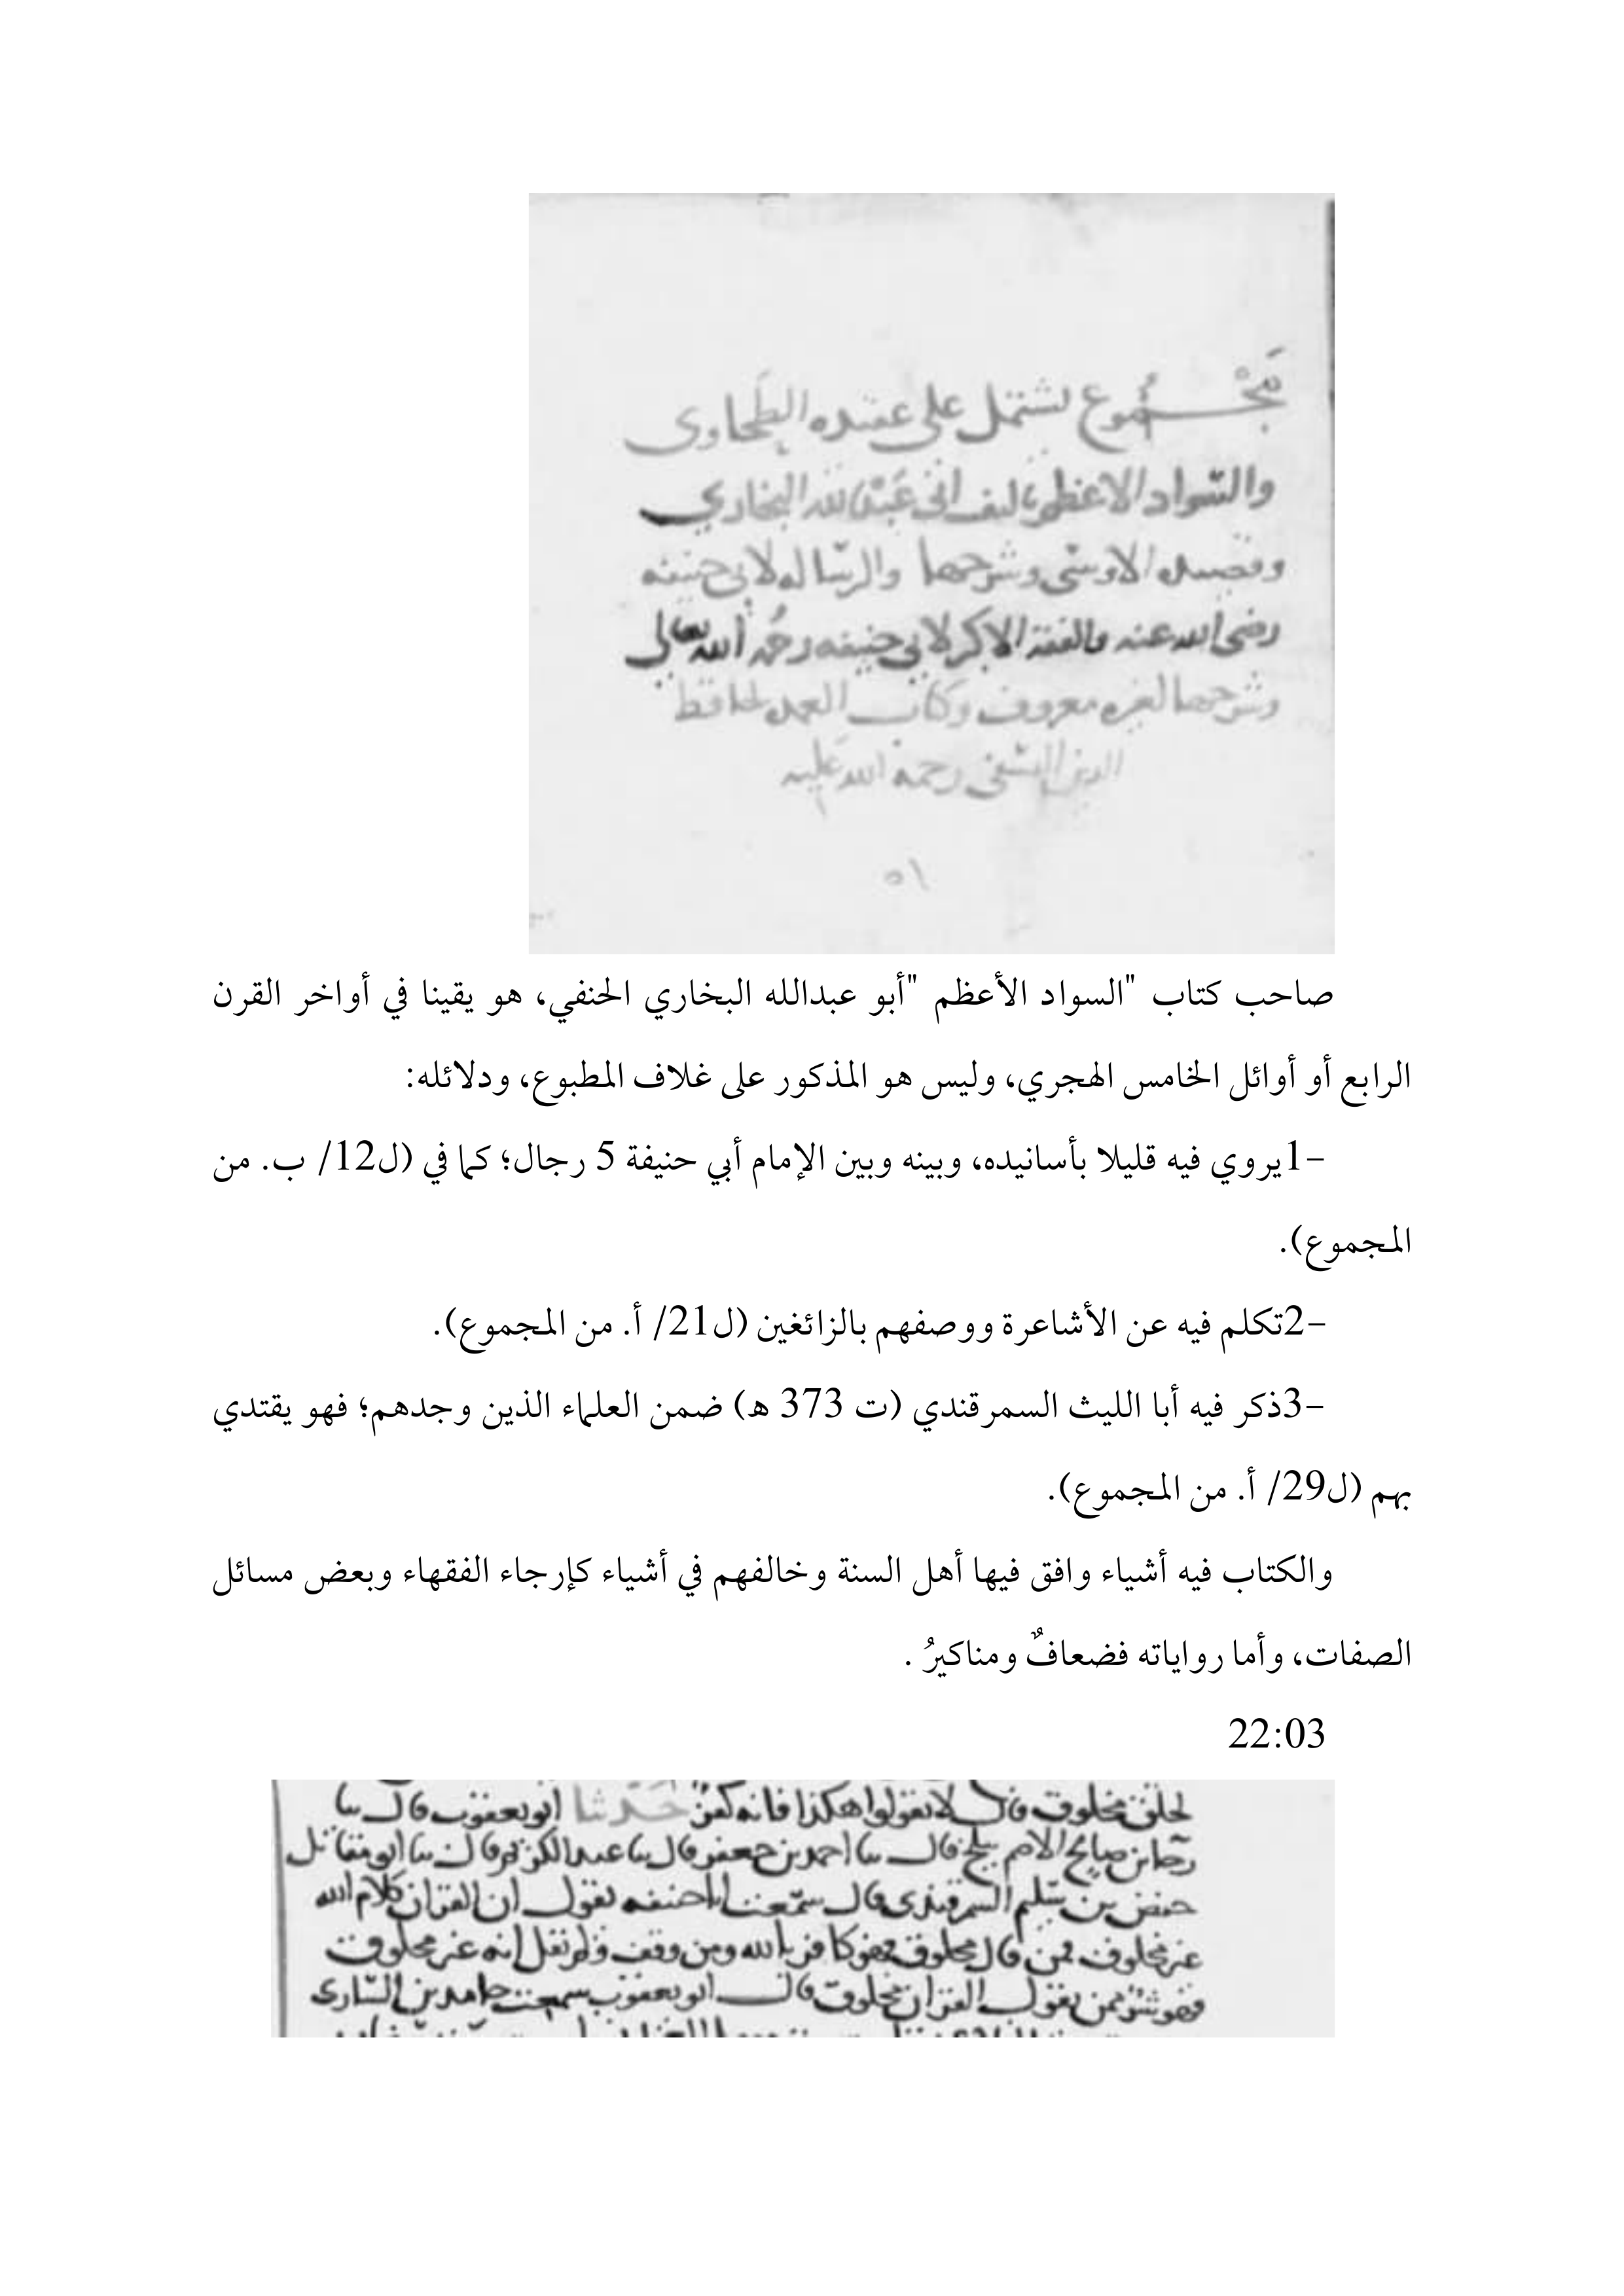 مجموع يشتمل على عقيده الطحاوى
والسواد الاعظم تاليف ابى عبد الله البخاري
وقصيده الاوشى وشرحها والرساله لابى حنيفه
رضى الله عنه والفقه الاكبر لابي حنيفه رحمه الله تعالى
وشرحها لغيره معروف وكتاب العمده لحافظ
الدين النسفى رحمة الله عليه
٥١
صاحب كتاب "السواد الأعظم "أبو عبدالله البخاري الحنفي، هو يقينا في أواخر القرن
الرابع أو أوائل الخامس الهجري، وليس هو المذكور على غلاف المطبوع، ودلائله:
-1يروي فيه قليلا بأسانيده، وبينه وبين الإمام أبي حنيفة 5 رجال؛ كما في (ل12/ ب. من
المجموع).
-2تكلم فيه عن الأشاعرة ووصفهم بالزائغين (ل21/ أ. من المجموع).
-3ذكر فيه أبا الليث السمرقندي (ت 373 ه) ضمن العلماء الذين وجدهم؛ فهو يقتدي
بهم (ل29/ أ. من المجموع).
والكتاب فيه أشياء وافق فيها أهل السنة وخالفهم في أشياء كإرجاء الفقهاء وبعض مسائل
الصفات، وأما رواياته فضعافٌ ومناكيرُ .
22:03
مخلوق قال لا تقولوا هكذا فانه كفر حدثنا ابو يعقوب قال ثنا
صالح ببلخ قال ثنا احمد بن جعفر قال ثنا عبد الكريم قال ثنا ابو مقاتل
حفص بن سلم السمرقندى قال سمعت ابا حنيفه يقول ان القران كلام الله
غير مخلوق فمن قال مخلوق فهو كافر بالله ومن وقف ولم يقل انه غير مخلوق
فهو شر ممن يقول القران مخلوق قال ابو يعقوب سمعت حامد بن